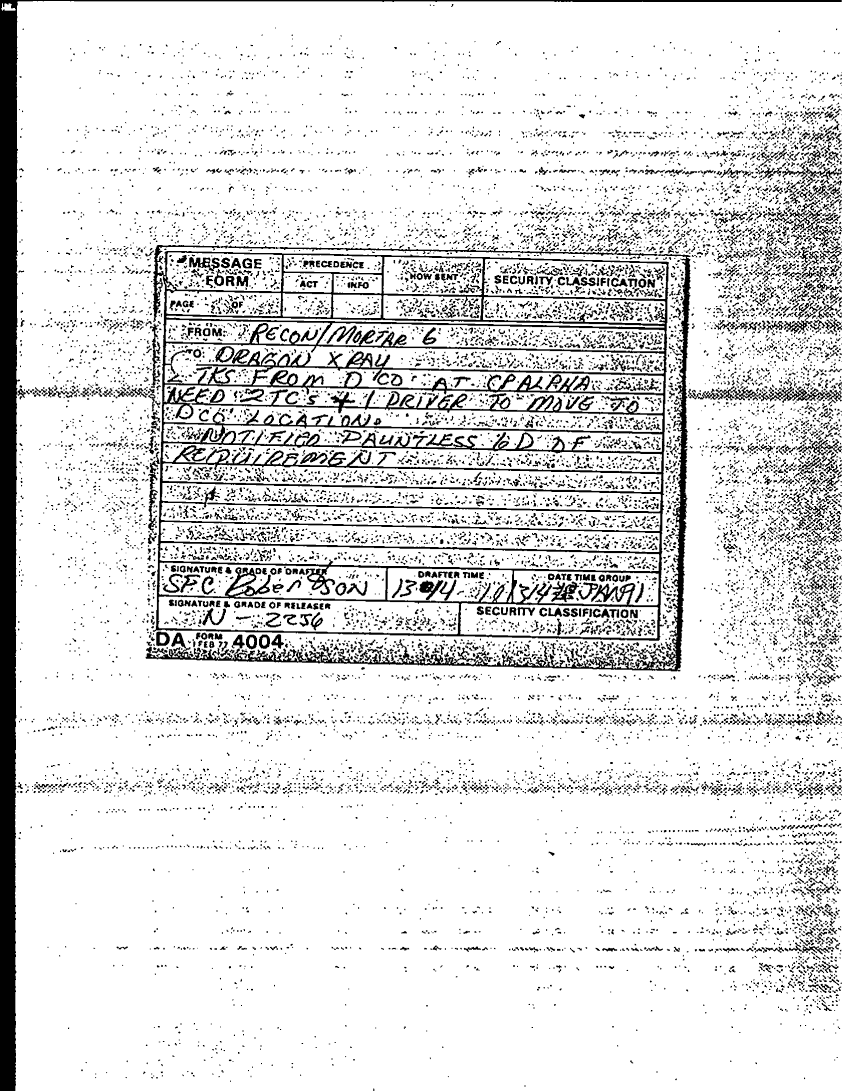 MESSAGE FORM
PRECEDENCE
ACT INFO
HOW SENT
SECURITY CLASSIFICATION
PAGE OF
FROM: RECON/MORTAR 6
TO: DRAGON X RAY
2 TKS FROM D CO. AT CP ALPHA
NEED 2 TC'S + 1 DRIVER TO MOVE TO
D CO. LOCATION.
NOTIFIED DAUNTLESS 6D OF
REIDUIREMENT
SIGNATURE & GRADE OF DRAFTER
SFC Robertson
DRAFTER TIME
DATE TIME GROUP
JAN 91
SIGNATURE & GRADE OF RELEASER
N - 2256
SECURITY CLASSIFICATION
DA FORM 1 FEB 77 4004